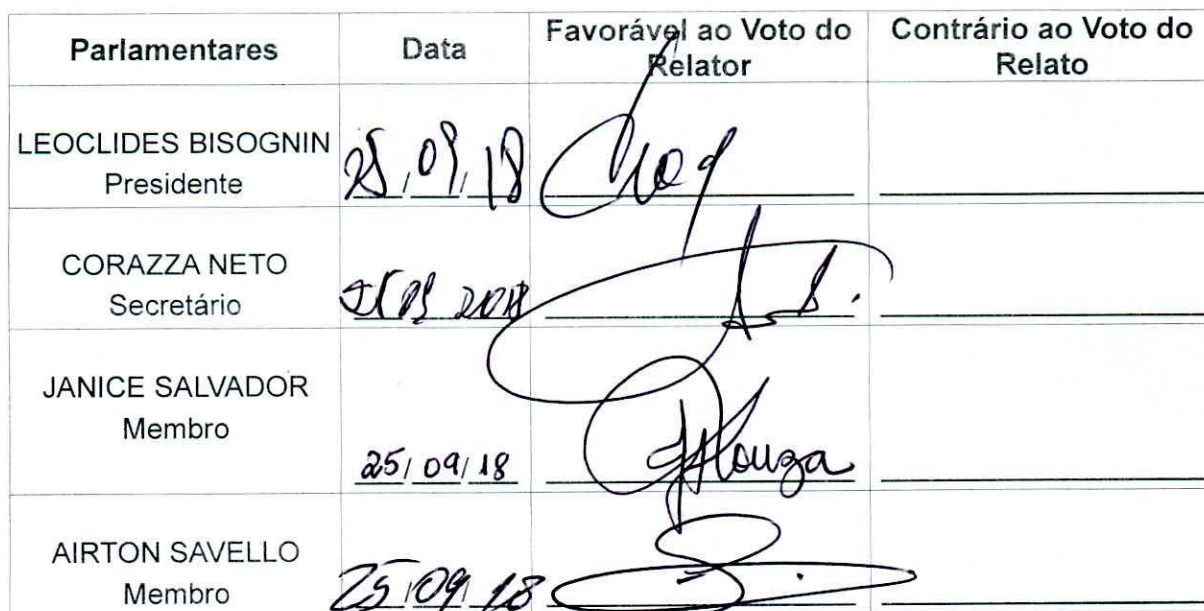 Parlamentares Data Favorável ao Voto do Relator Contrário ao Voto do Relato
LEOCLIDES BISOGNIN
Presidente
25/09/18
CORAZZA NETO
Secretário
2018
JANICE SALVADOR
Membro
25/09/18
AIRTON SAVELLO
Membro
25/09/18